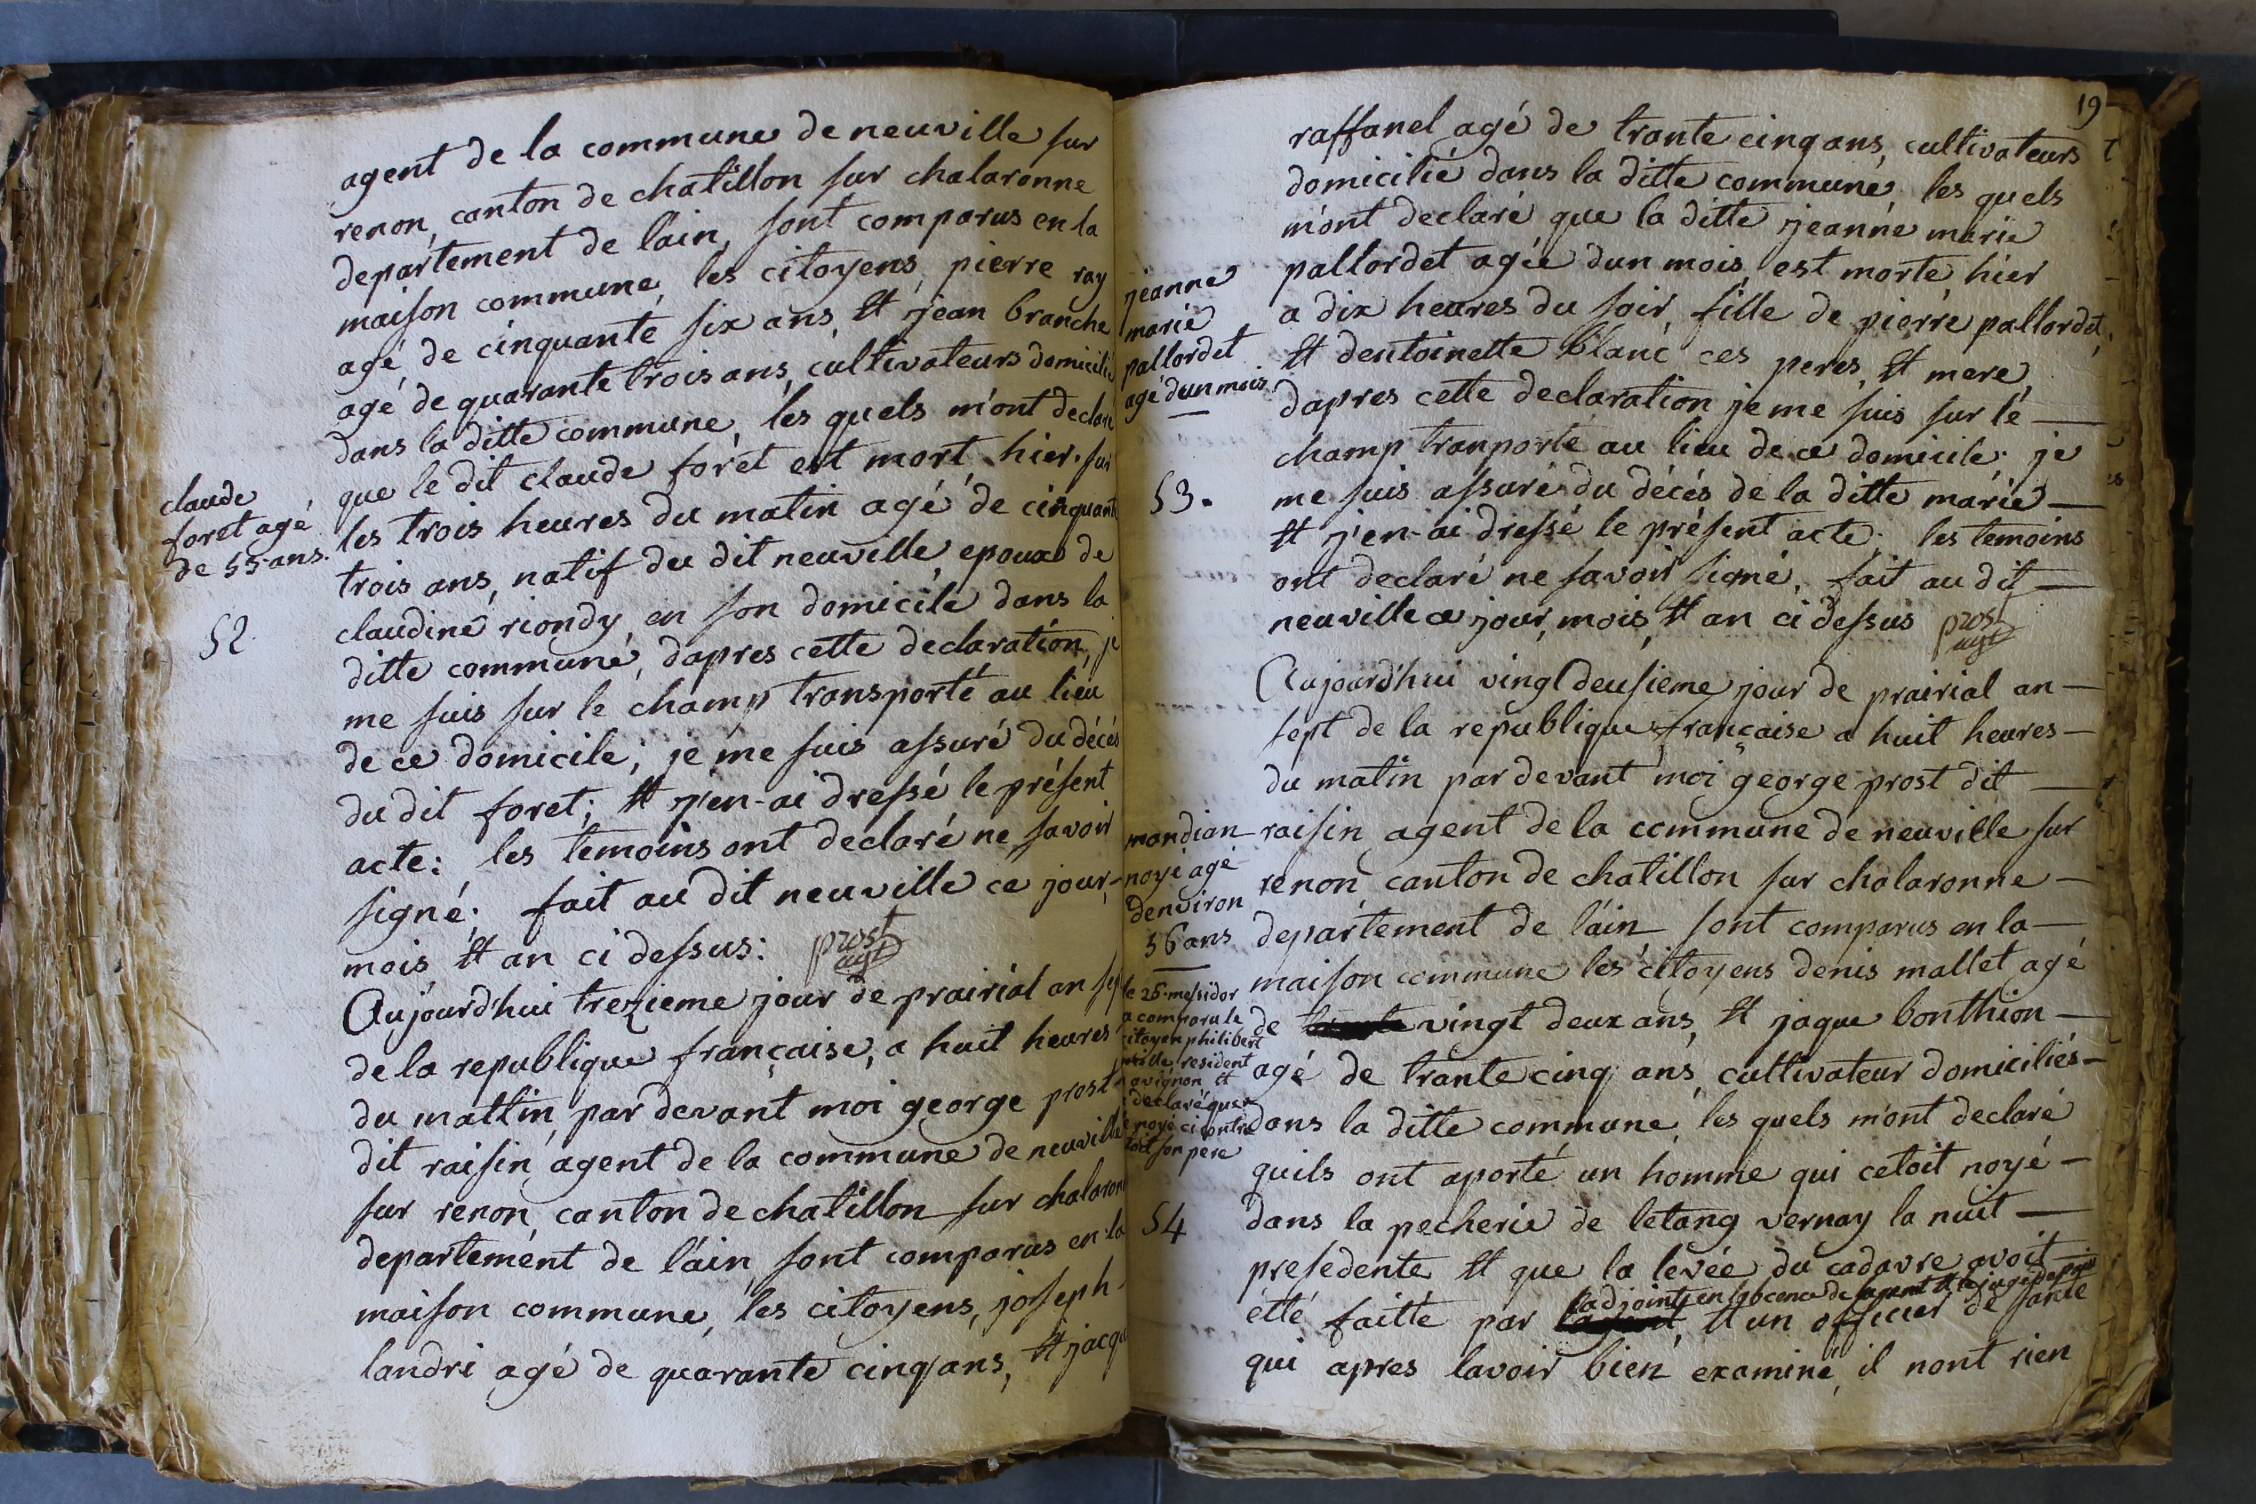 agent de la commune de neuville sur
renon, canton de chatillon sur chalaronne
departement de lain, sont comparus en la
maison commune, les citoyens, pierre ray
agé, de cinquante six ans, et jean branche
agé de quarante trois ans, cultivateurs domicilié
dans la ditte commune, les quels m'ont declaré
que le dit claude foret est mort, hier. sur
les trois heures du matin agé de cinquante
trois ans, natif du dit neuville, epoux de
claudine riondy, en son domicile dans la
ditte commune, dapres cette declaration, je
me suis sur le champ transporté au lieu
de ce domicile; je me suis assuré du décés
du dit foret; et j'en-ai dressé le présent
acte: les temoins ont declaré ne savoir
signé; fait au dit neuville ce jour,
mois et an ci dessus: prost
agt
claude
foret agé
de 55 ans.
52
Aujourd'hui trezieme jour de prairial an sept
de la republique française, a huit heures
du mattin, par devant moi george prost
dit raisin, agent de la commune de neuville
sur renon, canton de chatillon sur chalaronne
departement de l'ain, sont comparus en la
maison commune, les citoyens, joseph
landri agé de quarante cinq ans, et jacque
19
raffanel agé de trante cinq ans, cultivateurs
domicilié dans la ditte commune, les quels
m'ont declaré que la ditte jeanne marie
pallordet agée dun mois, est morte, hier
a dix heures du soir, fille de pierre pallordet,
et dentoinette blanc ces peres, et mere,
dapres cette declaration je me suis sur le
champ tranporté au lieu de ce domicile; je
me suis assuré du décés de la ditte marie
et j'en-ai dressé le présent acte. les temoins
ont declaré ne savoir signé, fait au dit
neuville ce jour, mois, et an ci dessus prost
agt
jeanne
marie
pallordet
agé d'un mois.
53.
Aujourd'hui vingt deusieme jour de prairial an
sept de la republique française a huit heures
du matin par devant moi george prost dit
raisin, agent de la commune de neuville sur
renon, canton de chatillon sur chalaronne
departement de l'ain sont comparus en la
maison commune les citoyens denis mallet agé
de vingt deux ans, et jaque bonthion
agé de trante cinq ans, cultivateur domiciliés
dans la ditte commune, les quels m'ont declaré
quils ont aporté un homme qui cetoit noyé
dans la pecherie de letang vernay la nuit
presedente, et que la levée du cadavre avoit
ladjoint en labcence de lagent et le juge de paix
etté faitte par et un officier de santé
qui apres lavoir bien examiné, il nont rien
mandian
noyé agé
denviron
56 ans
le 25 messidor
a comparu le
citoyen philibert
resident
a avignon et
a declaré que
le noyé ci contre
etoit son pere
54